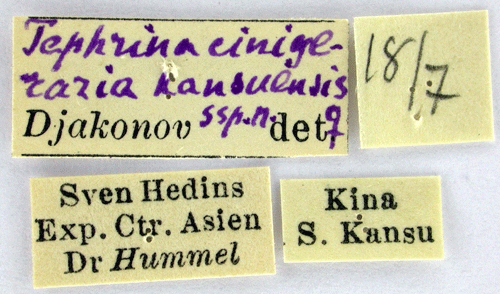 Tephrina cinige-
raria kansuensis
Djakonov ssp.n. det ♀
18/7
Sven Hedins
Exp. Ctr. Asien
Dr Hummel
Kina
S. Kansu